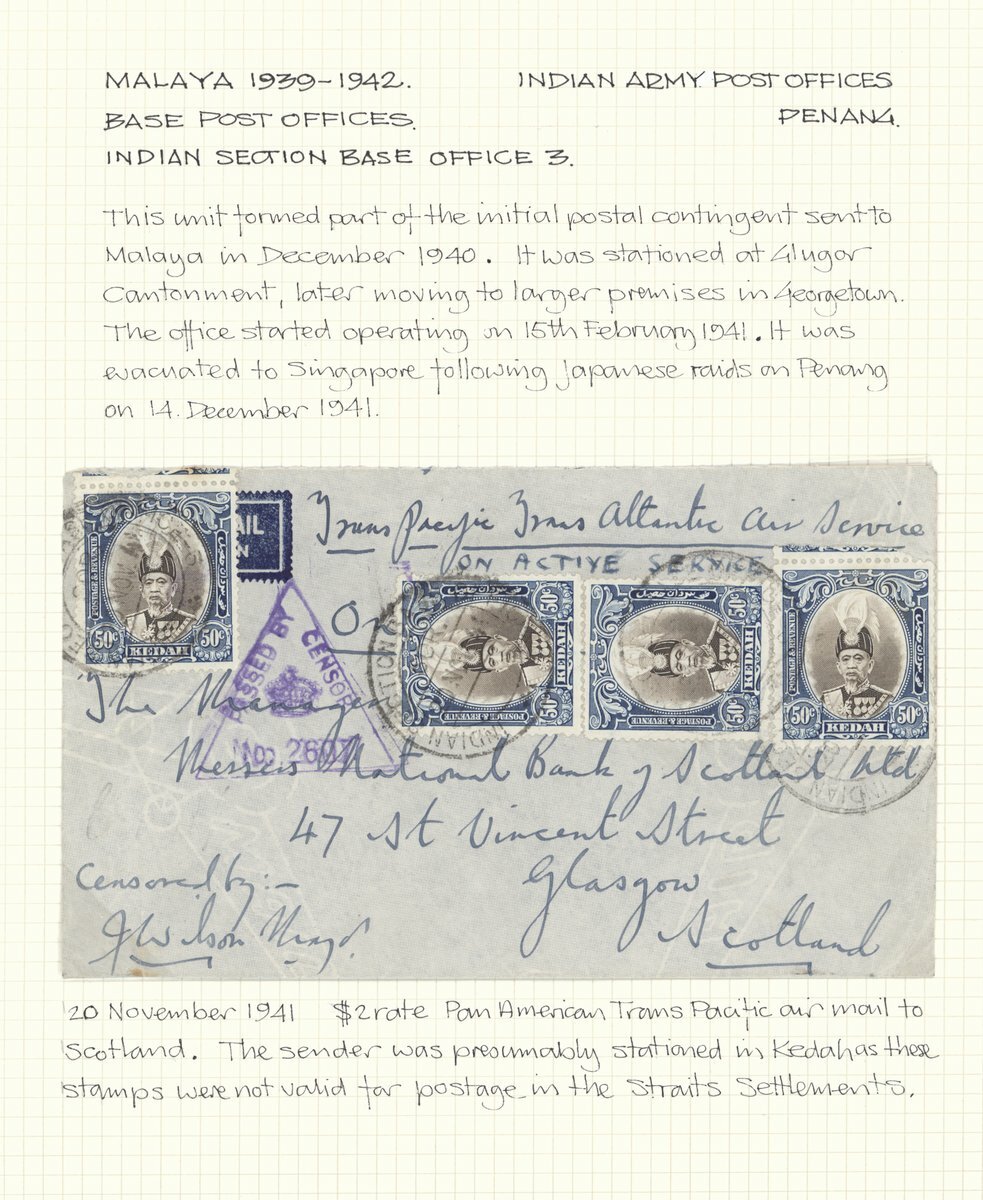 MALAYA 1939-1942.
INDIAN ARMY POST OFFICES
BASE POST OFFICES.
PENANG.
INDIAN SECTION BASE OFFICE 3.
This unit formed part of the initial postal contingent sent to
Malaya in December 1940. It was stationed at Glugor
Cantonment, later moving to larger premises in Georgetown.
The office started operating on 15th February 1941. It was
evacuated to Singapore following Japanese raids on Penang
on 14. December 1941.
Trans Pacific Trans Altantic Air Service
ON ACTIVE SERVICE
POSTAGE & REVENUE
50c 50c
KEDAH
PASSED BY CENSOR
No. 2607
50c KEDAH 50c
POSTAGE & REVENUE
INDIAN
50c KEDAH 50c
POSTAGE & REVENUE
50c 50c
KEDAH
INDIAN
The Manager
Messrs National Bank of Scotland Ltd
47 St Vincent Street
Glasgow
Scotland
Censored by:-
JWilson
20 November 1941 $2 rate Pan American Trans Pacific air mail to
Scotland. The sender was presumably stationed in Kedah as these
stamps were not valid for postage in the Straits Settlements.